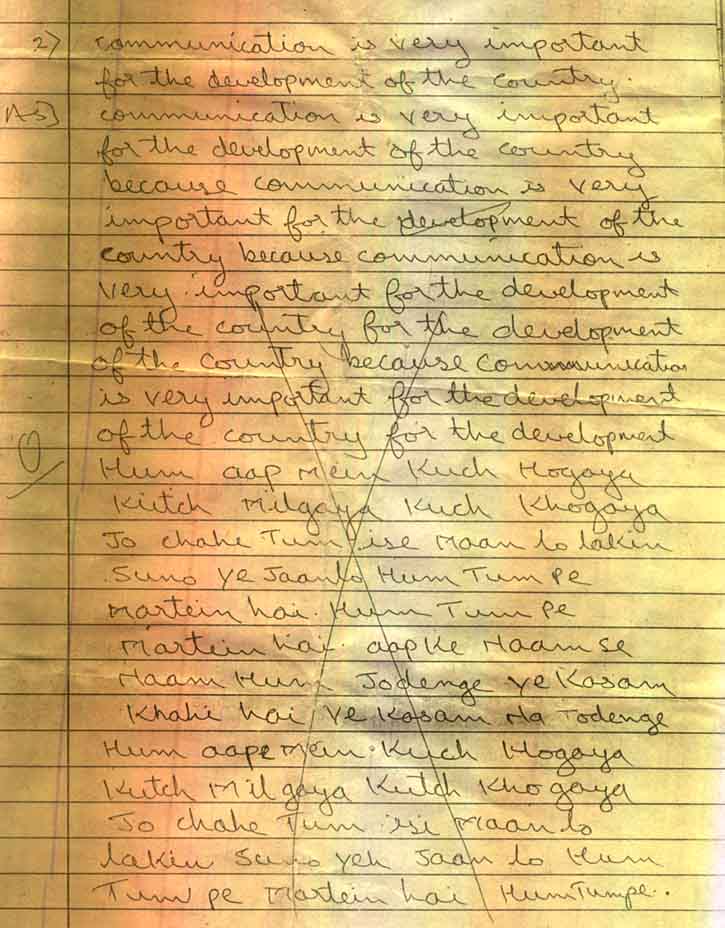 2) communication is very important
for the development of the country.
AS] communication is very important
for the development of the country
because communication is very
important for the development of the
country because communication is
very important for the development
of the country for the development
of the country because communication
is very important for the development
of the country for the development
0
Hum aap mein Kuch Hogaya
Kutch Milgaya Kuch Khogaya
Jo chahe Tum ise Maan lo lakin
Suno ye Jaanlo Hum Tum pe
martein hai. Hum Tum pe
Martein hai. aap ke Naam se
Naam Hum Jodenge ye Kasam
Khahi hai ye Kasam Na Todenge
Hum aape mein Kuch Hogaya
Kutch Milgaya Kutch Khogaya
Jo chahe Tum isi Maan lo
lakin Suno yeh Jaan lo Hum
Tum pe Martein hai HumTumpe.